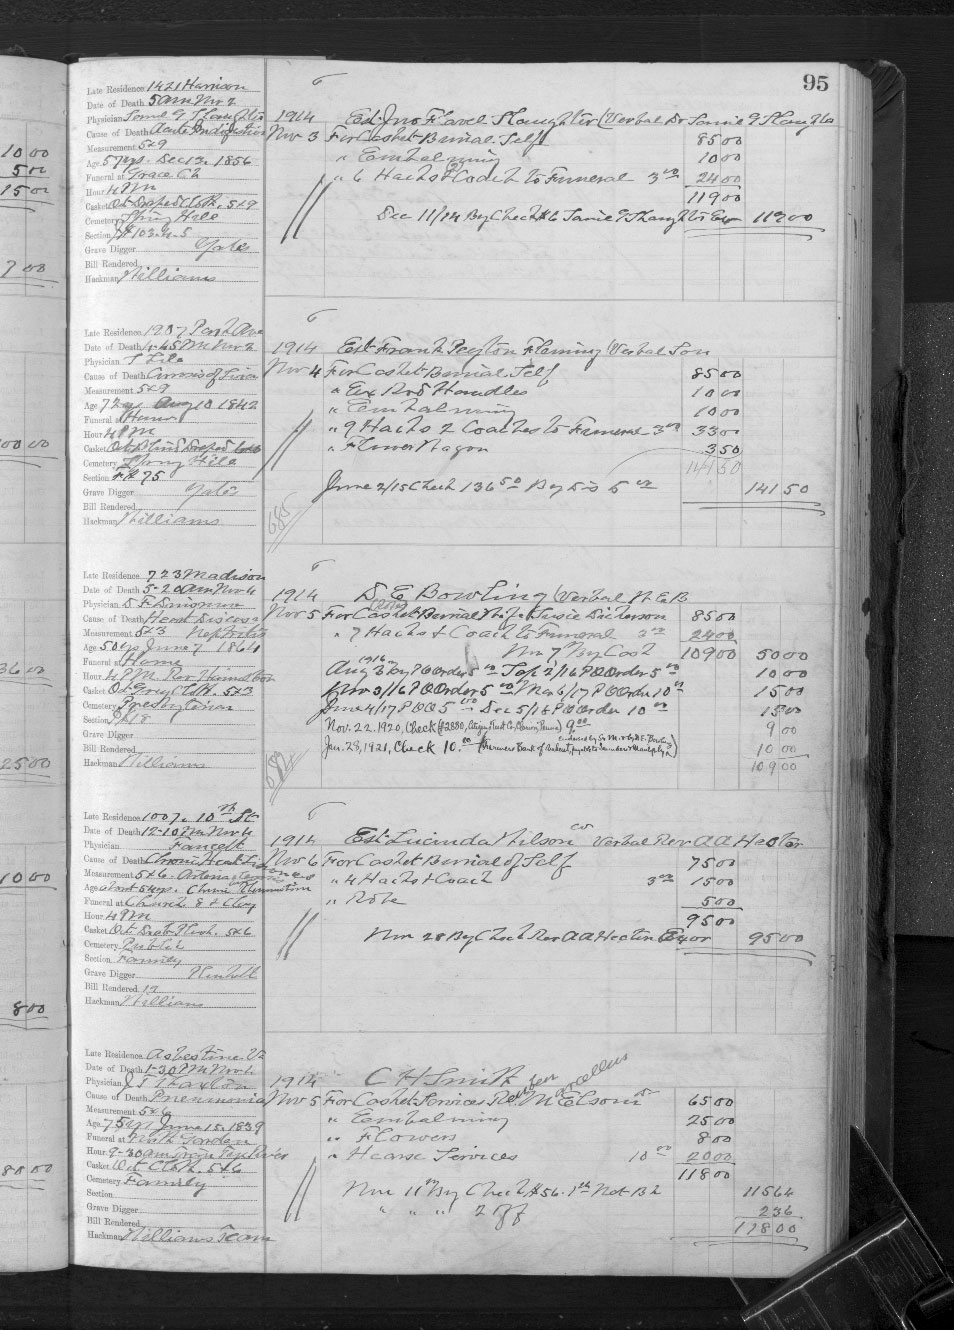 95
10 00
5 00
15 00
7 00
00 00
36 00
25 00
10 00
8 00
80 00
Late Residence 1421 Harrison
Date of Death 5 am Nov 2
Physician
Cause of Death Acute Indigestion
Measurement 5x9
Age 57 yrs. Dec 12. 1856
Funeral at Grace Ch
Hour 4 PM
Casket Oct Draped Cloth. 5x9
Cemetery Spring Hill
Section
Grave Digger Yates
Bill Rendered
Hackman Williams
1914 Est. Jno Flavel Slaughter (Verbal Dr Samie G Slaughter
Nov 3 For Casket Burial Self 85 00
" Embalming 10 00
" 6 Hacks & Coach to Funeral 3 00 24 00
119 00
Dec 11/14 By Check Samie G Slaughter Ex 119 00
Late Residence 1907 Park Ave
Date of Death 1-45 PM Nov 2
Physician
Cause of Death
Measurement 5x9
Age 72 yrs Aug 10 1842
Funeral at Home
Hour 4 PM
Casket Draped
Cemetery Spring Hill
Section 75
Grave Digger Yates
Bill Rendered
Hackman Williams
1914 Est Frank Peyton Fleming (Verbal Son
Nov 4 For Casket Burial Self 85 00
" Ex Rod Handles 10 00
" Embalming 10 00
" 9 Hacks 2 Coaches to Funeral 3 00 33 00
" Flower Wagon 3 50
141 50
June 2/15 Check 136 50 By Dis 5 00 141 50
685
Late Residence 723 Madison
Date of Death 5-20 am Nov 4
Physician
Cause of Death Heart Disease
Measurement 5x3 Nephritis
Age 50 yrs June 7 1864
Funeral at Home
Hour 4 PM Rev
Casket Grey Cloth. 5x3
Cemetery Presbyterian
Section
Grave Digger
Bill Rendered
Hackman Williams
1914 D. E. Bowling (Verbal W. E. B
Nov 5 For Casket Burial Susie Dickerson 85 00
" 7 Hacks & Coach to Funeral 3 00 24 00
Nov 7 By Cash 109 00 50 00
1916
Aug 3 By P O Order 5 00 Sep 2/16 P O Order 5 00 10 00
Nov 3/16 P O Order 5 00 Mch 6/17 P O Order 10 00 15 00
June 4/17 P O O 5 00 Dec 5/18 P O Order 10 00 15 00
Nov. 22, 1920, Check (#2880, Citizens 9.00 9 00
Jan. 28, 1921, Check 10.00 (Farmers Bank of Amherst, payable to 10 00
109 00
684
Late Residence 1007 10th St
Date of Death 12-10 Nov 4
Physician Fancett
Cause of Death Chronic Heart
Measurement 5x6
Age about 54 yrs.
Funeral at Church
Hour 4 PM
Casket Oct Drab Plush. 5x6
Cemetery Public
Section Family
Grave Digger
Bill Rendered 19
Hackman Williams
1914 Est Lucinda Wilson Col Verbal Rev A A Hector
Nov 6 For Casket Burial of Self 75 00
" 4 Hacks & Coach 3 00 15 00
" Robe 5 00
95 00
Nov 28 By Check Rev A A Hector Exor 95 00
Late Residence Asbestine Va
Date of Death 1-30 PM Nov
Physician J T Thaxton
Cause of Death Pneumonia
Measurement 5x6
Age 75 yrs June 15. 1839
Funeral at North Garden
Hour 9-30 am
Casket Oct Cloth. 5x6
Cemetery Family
Section
Grave Digger
Bill Rendered
Hackman Williams Team
1914 C H Smith
Nov 5 For Casket Services Reuben Marcellus Elsom 65 00
" Embalming 25 00
" Flowers 8 00
" Hearse Services 10 00 20 00
118 00
Nov 11th By Check #56. 1st Nat Bk 115 64
" " " 2 % off 2 36
118 00